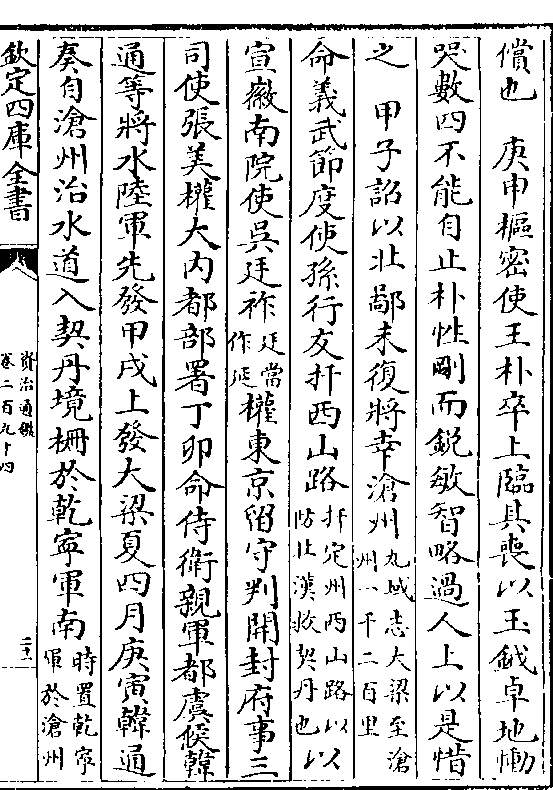 償也　庚申樞密使王朴卒上臨其喪以玉鉞卓地慟
哭數四不能自止朴性剛而鋭敏智略過人上以是惜
之　甲子詔以北鄙未復將幸滄州九域志大梁至滄州一千二百里
命義武節度使孫行友扞西山路扞定州西山路以防北漢救契丹也以
宣徽南院使吳廷祚廷當作延權東京留守判開封府事三
司使張美權大内都部署丁卯命侍衛親軍都虞候韓
通等將水陸軍先發甲戌上發大梁夏四月庚寅韓通
奏自滄州治水道入契丹境柵於乾寧軍南時置乾寧軍於滄州
欽定四庫全書
資治通鑑
卷二百九十四
二十一